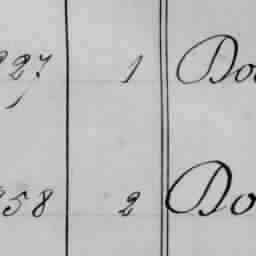 227 1 Do
258 2 Do